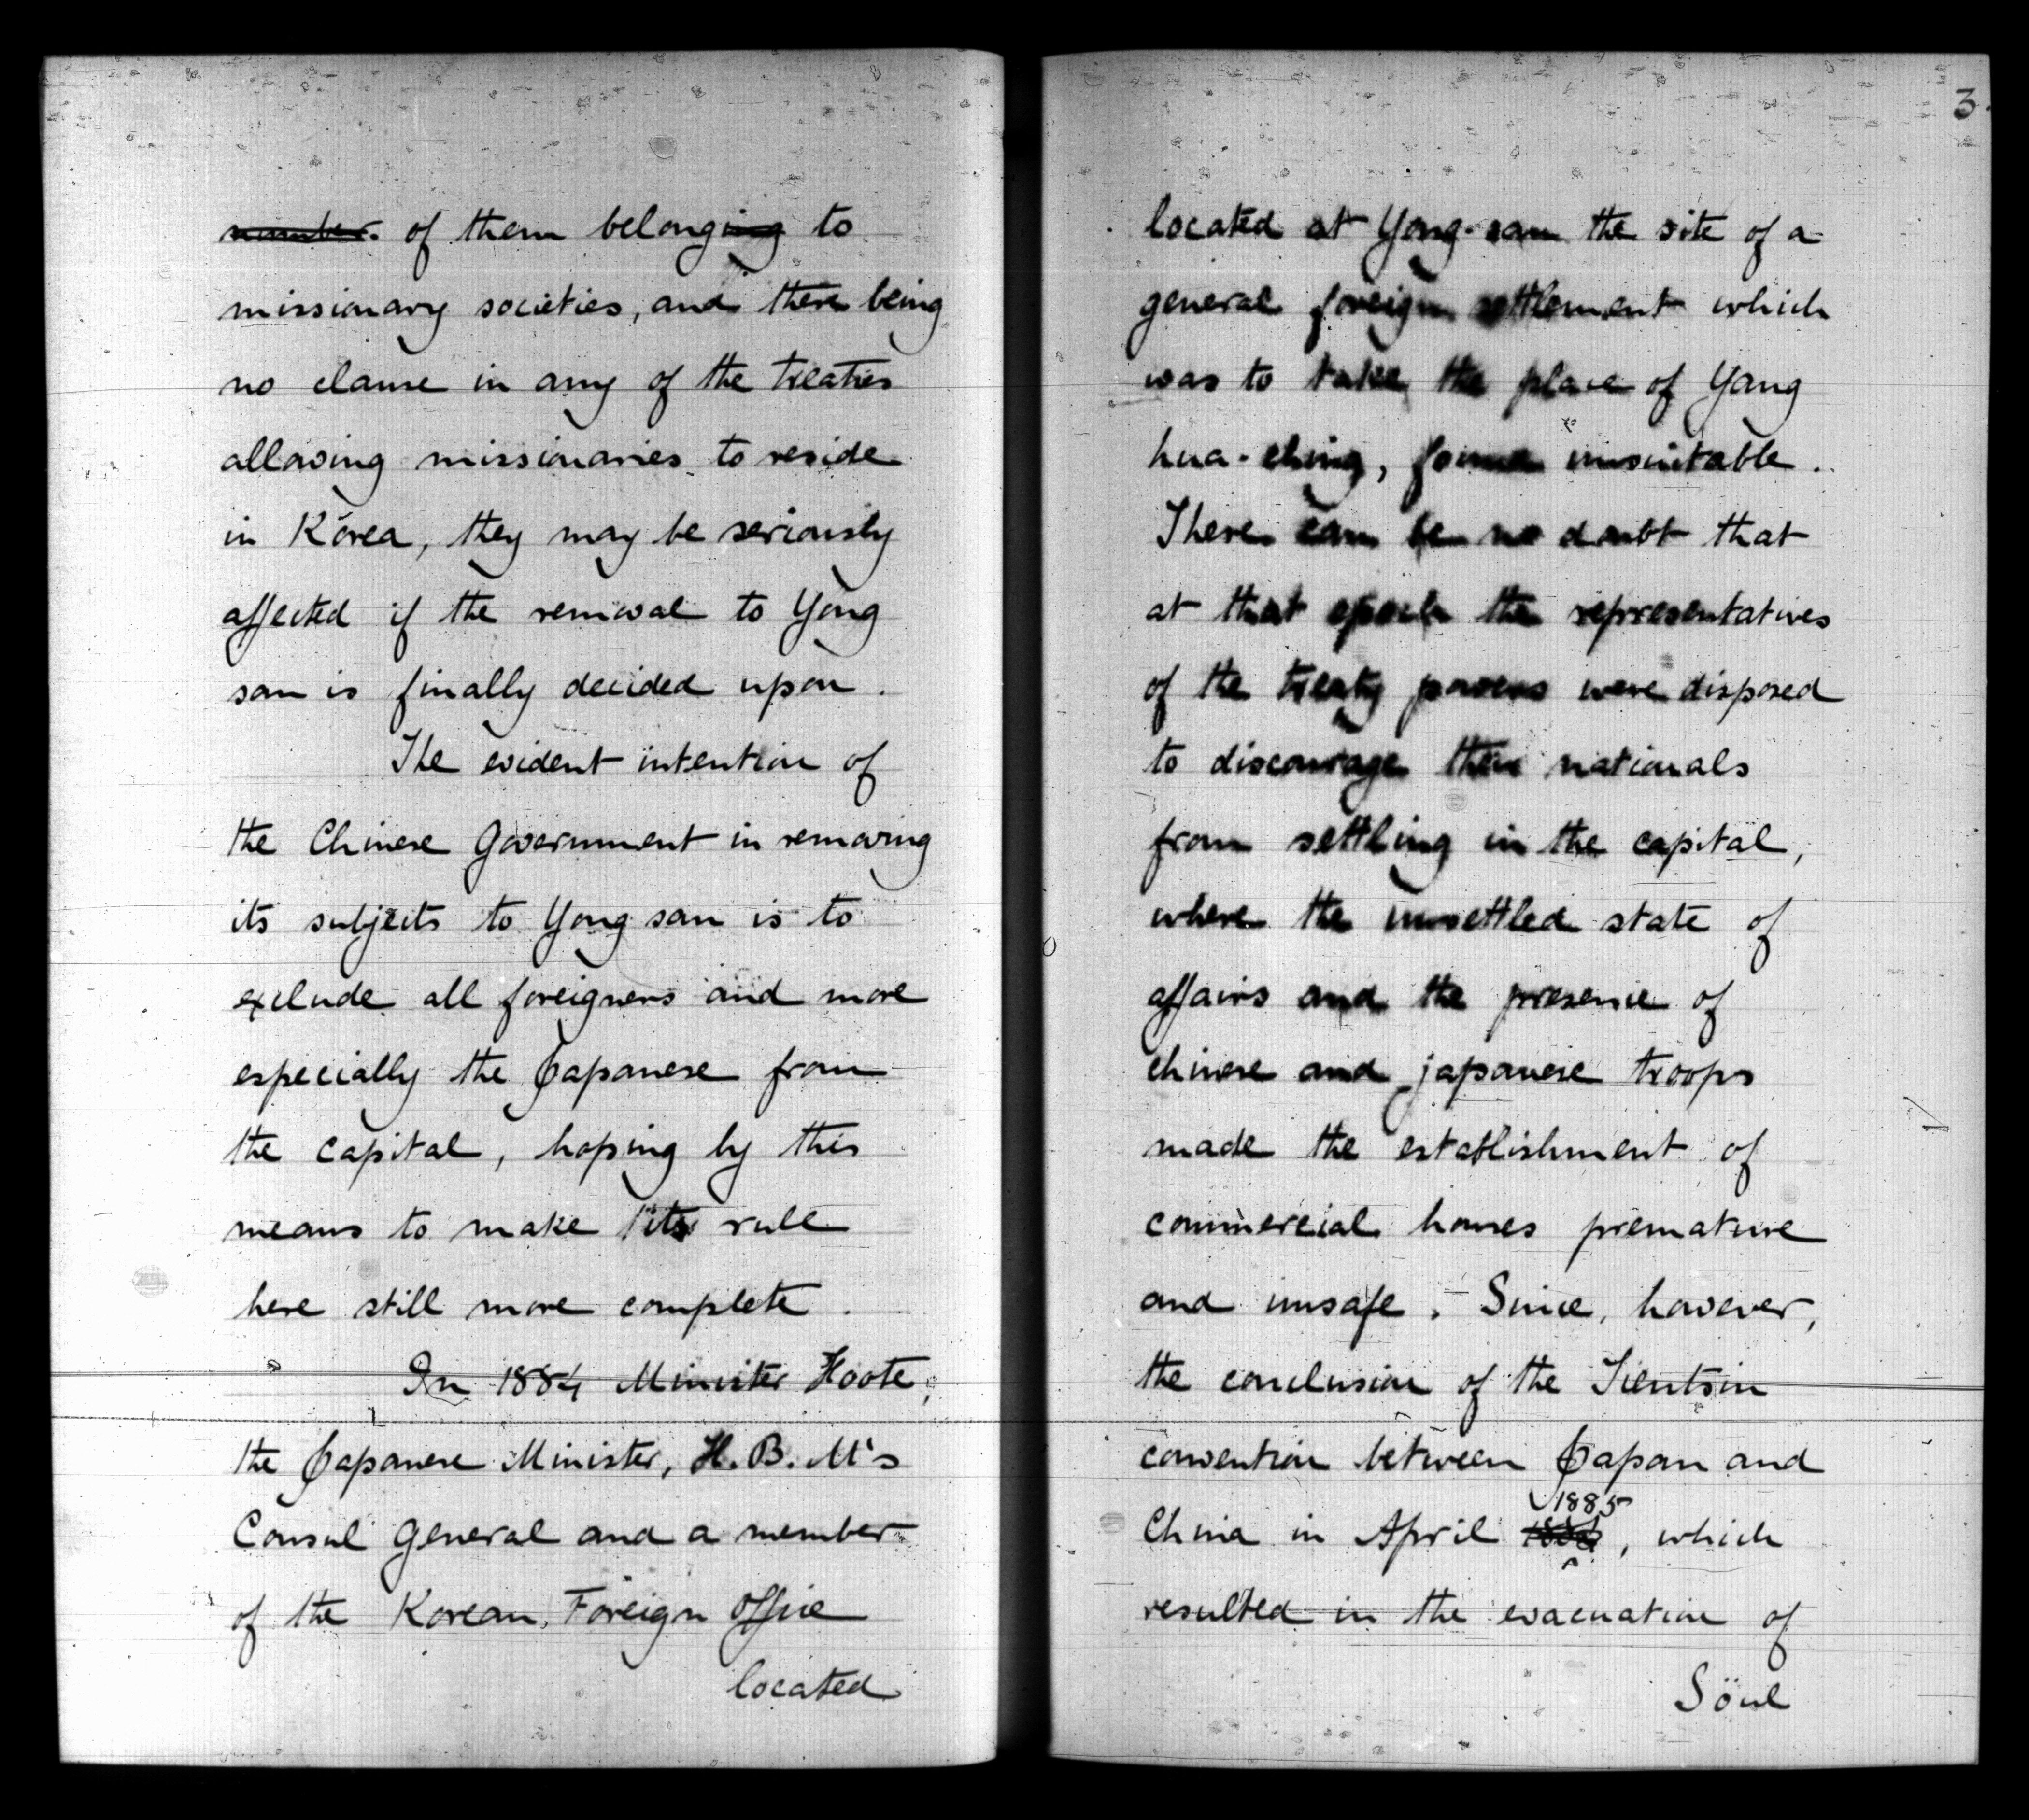 number of them belonging to
missionary societies, and there being
no clause in any of the treaties
allowing missionaries to reside
in Korea, they may be seriously
affected if the removal to Yong
san is finally decided upon.
The evident intention of
the Chinese Government in removing
its subjects to Yong san is to
exclude all foreigners and more
especially the Japanese from
the capital, hoping by this
means to make its rule
here still more complete.
In 1884 Minister Foote,
the Japanese Minister, H. B. M's
Consul General and a member
of the Korean Foreign Office
located
3.
located at Yong-san the site of a
general foreign settlement which
was to take the place of Yang
hua-ching, found unsuitable.
There can be no doubt that
at that epoch the representatives
of the treaty powers were disposed
to discourage their nationals
from settling in the capital,
where the unsettled state of
affairs and the presence of
chinese and japanese troops
made the establishment of
commercial houses premature
and unsafe. Since, however,
the conclusion of the Tientsin
convention between Japan and
1885
China in April 1884, which
resulted in the evacuation of
Söul